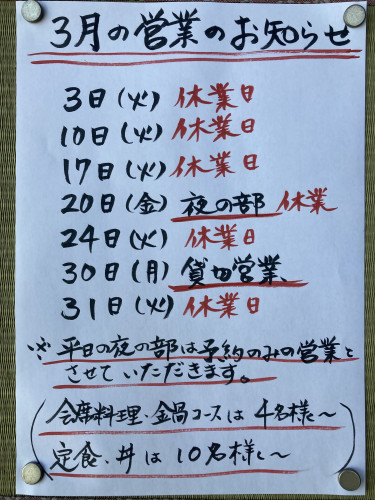 3月の営業のお知らせ
3日(火) 休業日
10日(火) 休業日
17日(火) 休業日
20日(金) 夜の部 休業
24日(火) 休業日
30日(月) 貸切営業、
31日(火) 休業日
※ 平日の夜の部は予約のみの営業と
させていただきます。
(会席料理・金鍋コースは 4名様〜
定食、丼は 10名様〜)